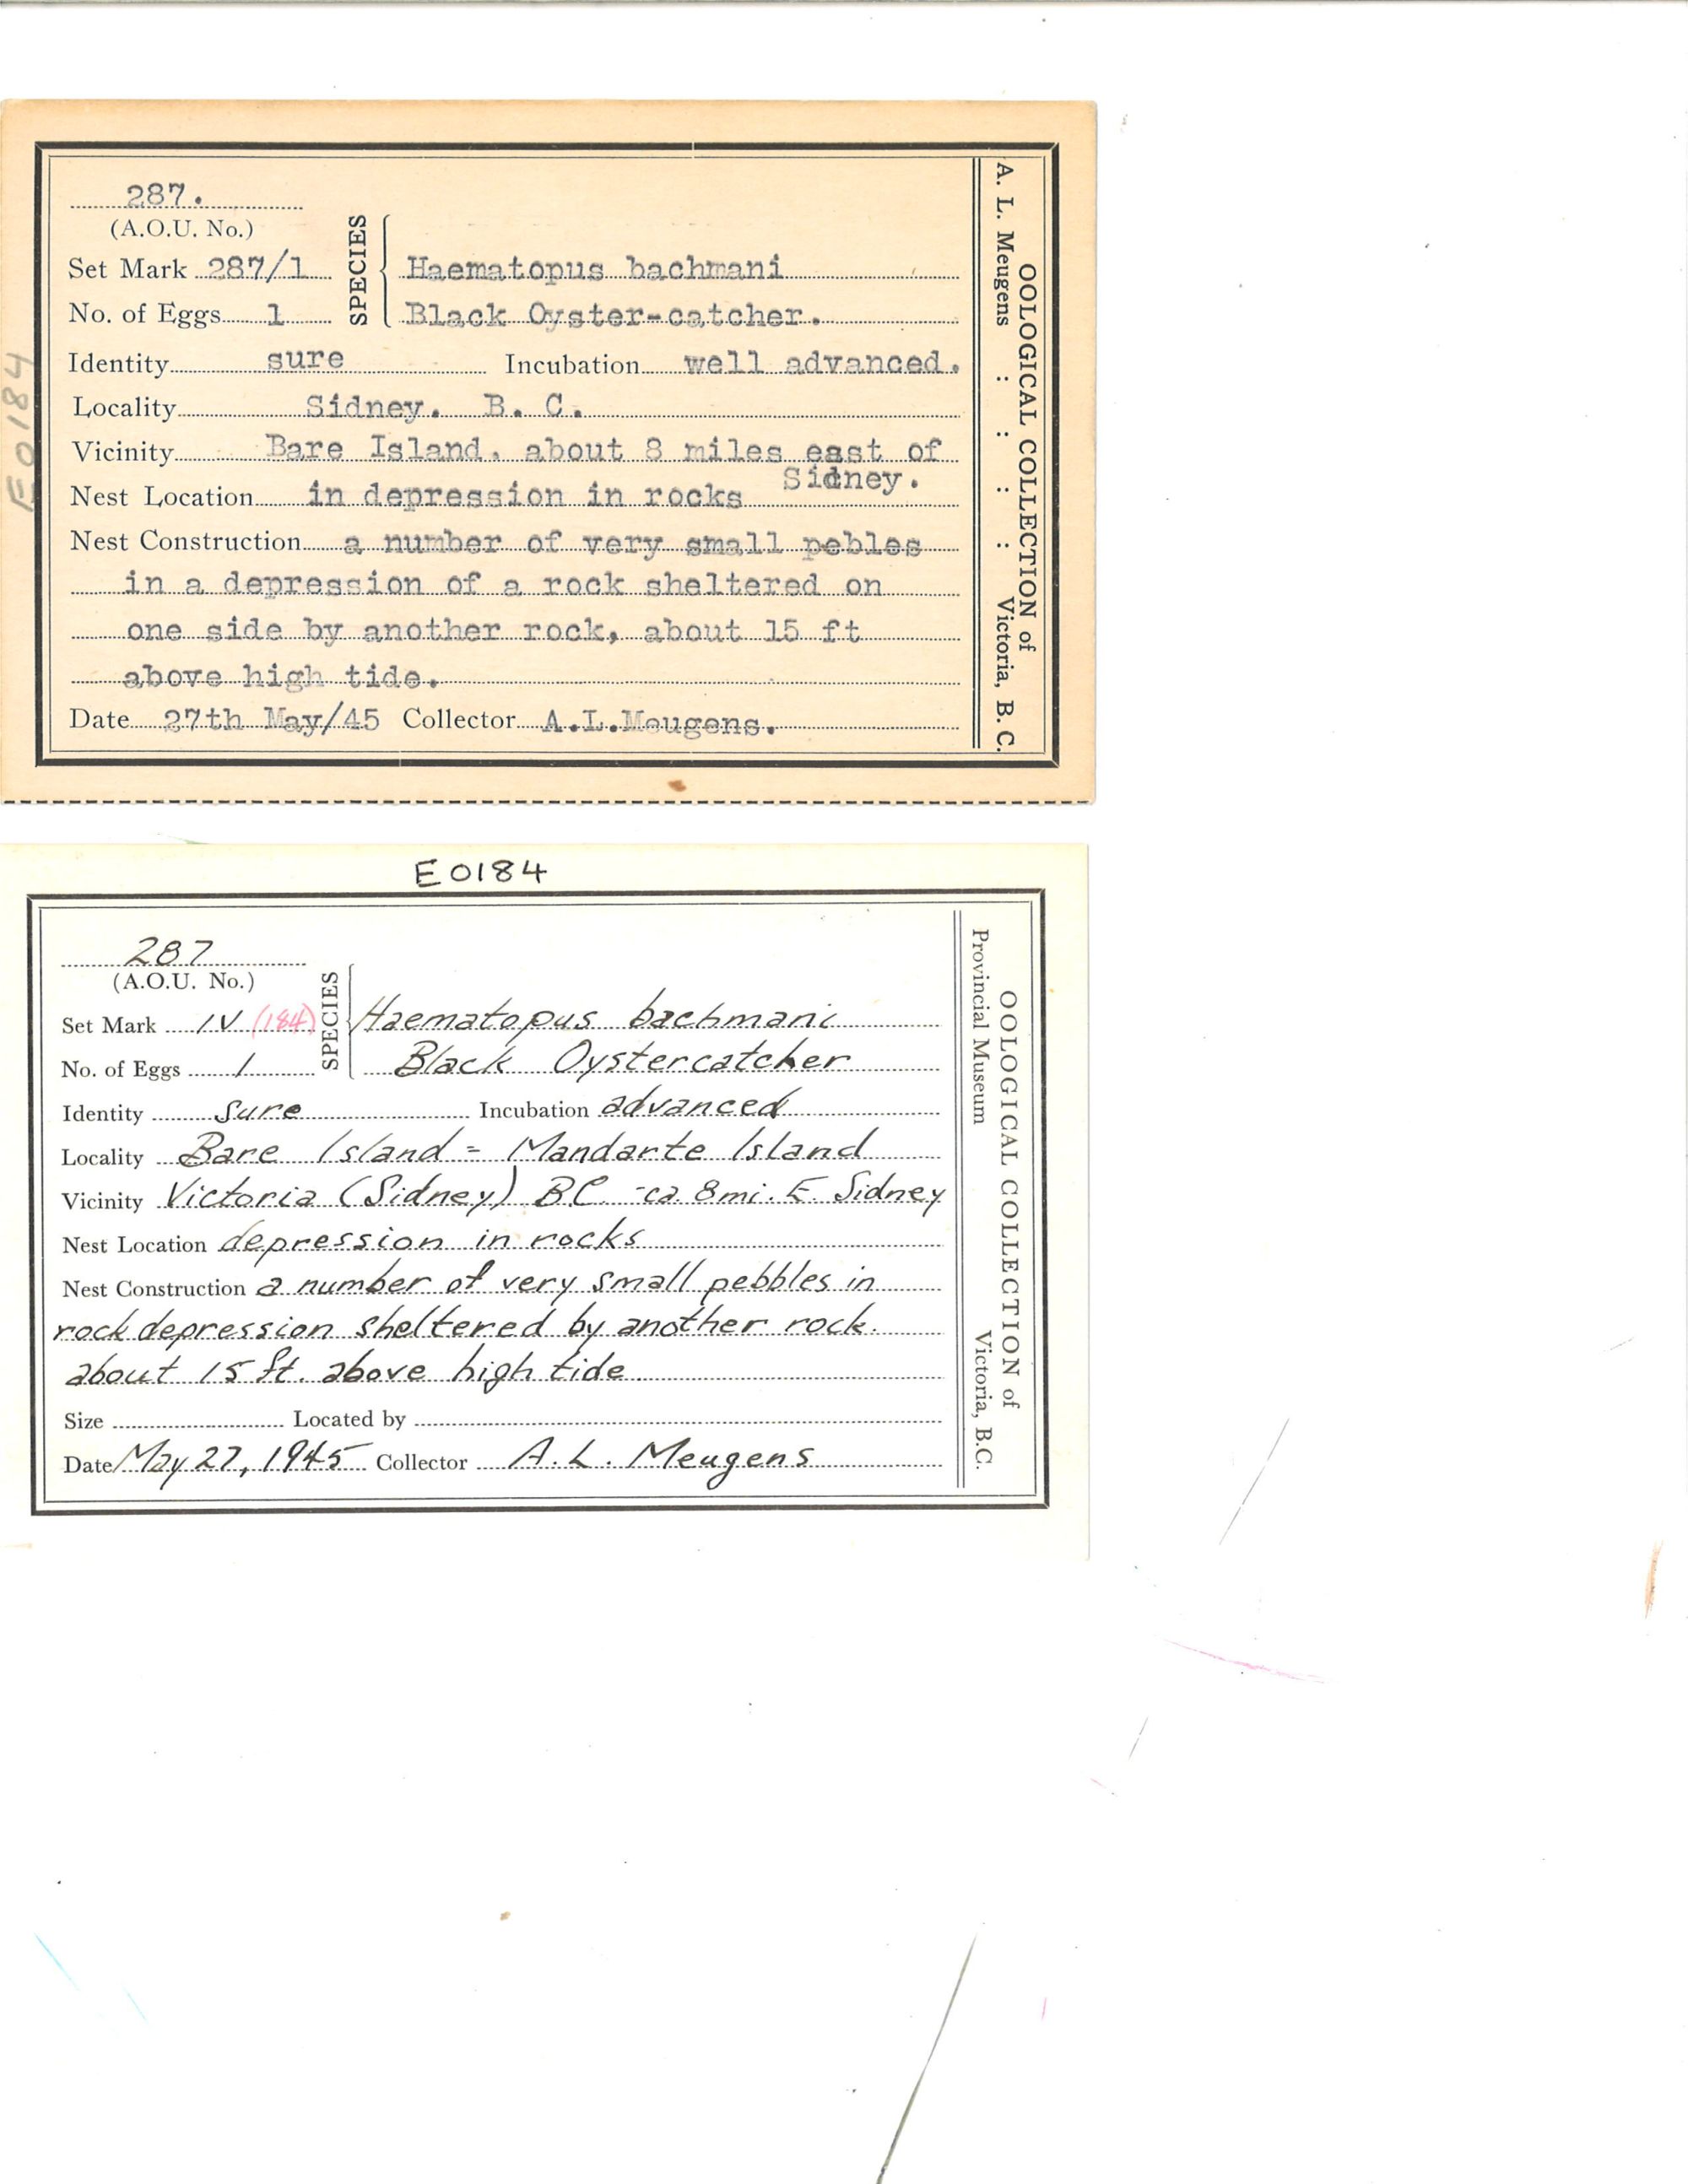 287.
(A.O.U. No.)
SPECIES
Set Mark 287/1 Haematopus bachmani
No. of Eggs 1 Black Oyster-catcher.
Identity sure Incubation well advanced.
Locality Sidney. B. C.
Vicinity Bare Island, about 8 miles east of
Sidney.
Nest Location in depression in rocks
Nest Construction a number of very small pebles
in a depression of a rock sheltered on
one side by another rock, about 15 ft
above high tide.
Date 27th May/45 Collector A.L.Meugens.
OOLOGICAL COLLECTION of
A. L. Meugens : : : : Victoria, B. C.
E0184
E0184
287
(A.O.U. No.)
SPECIES
Set Mark IV (184) Haematopus bachmani
No. of Eggs 1 Black Oystercatcher
Identity sure Incubation advanced
Locality Bare Island = Mandarte Island
Vicinity Victoria (Sidney) BC - ca. 8mi. E. Sidney
Nest Location depression in rocks
Nest Construction a number of very small pebbles in
rock depression sheltered by another rock.
about 15 ft. above high tide
Size Located by
Date May 27, 1945 Collector A. L. Meugens
OOLOGICAL COLLECTION of
Provincial Museum Victoria, B.C.